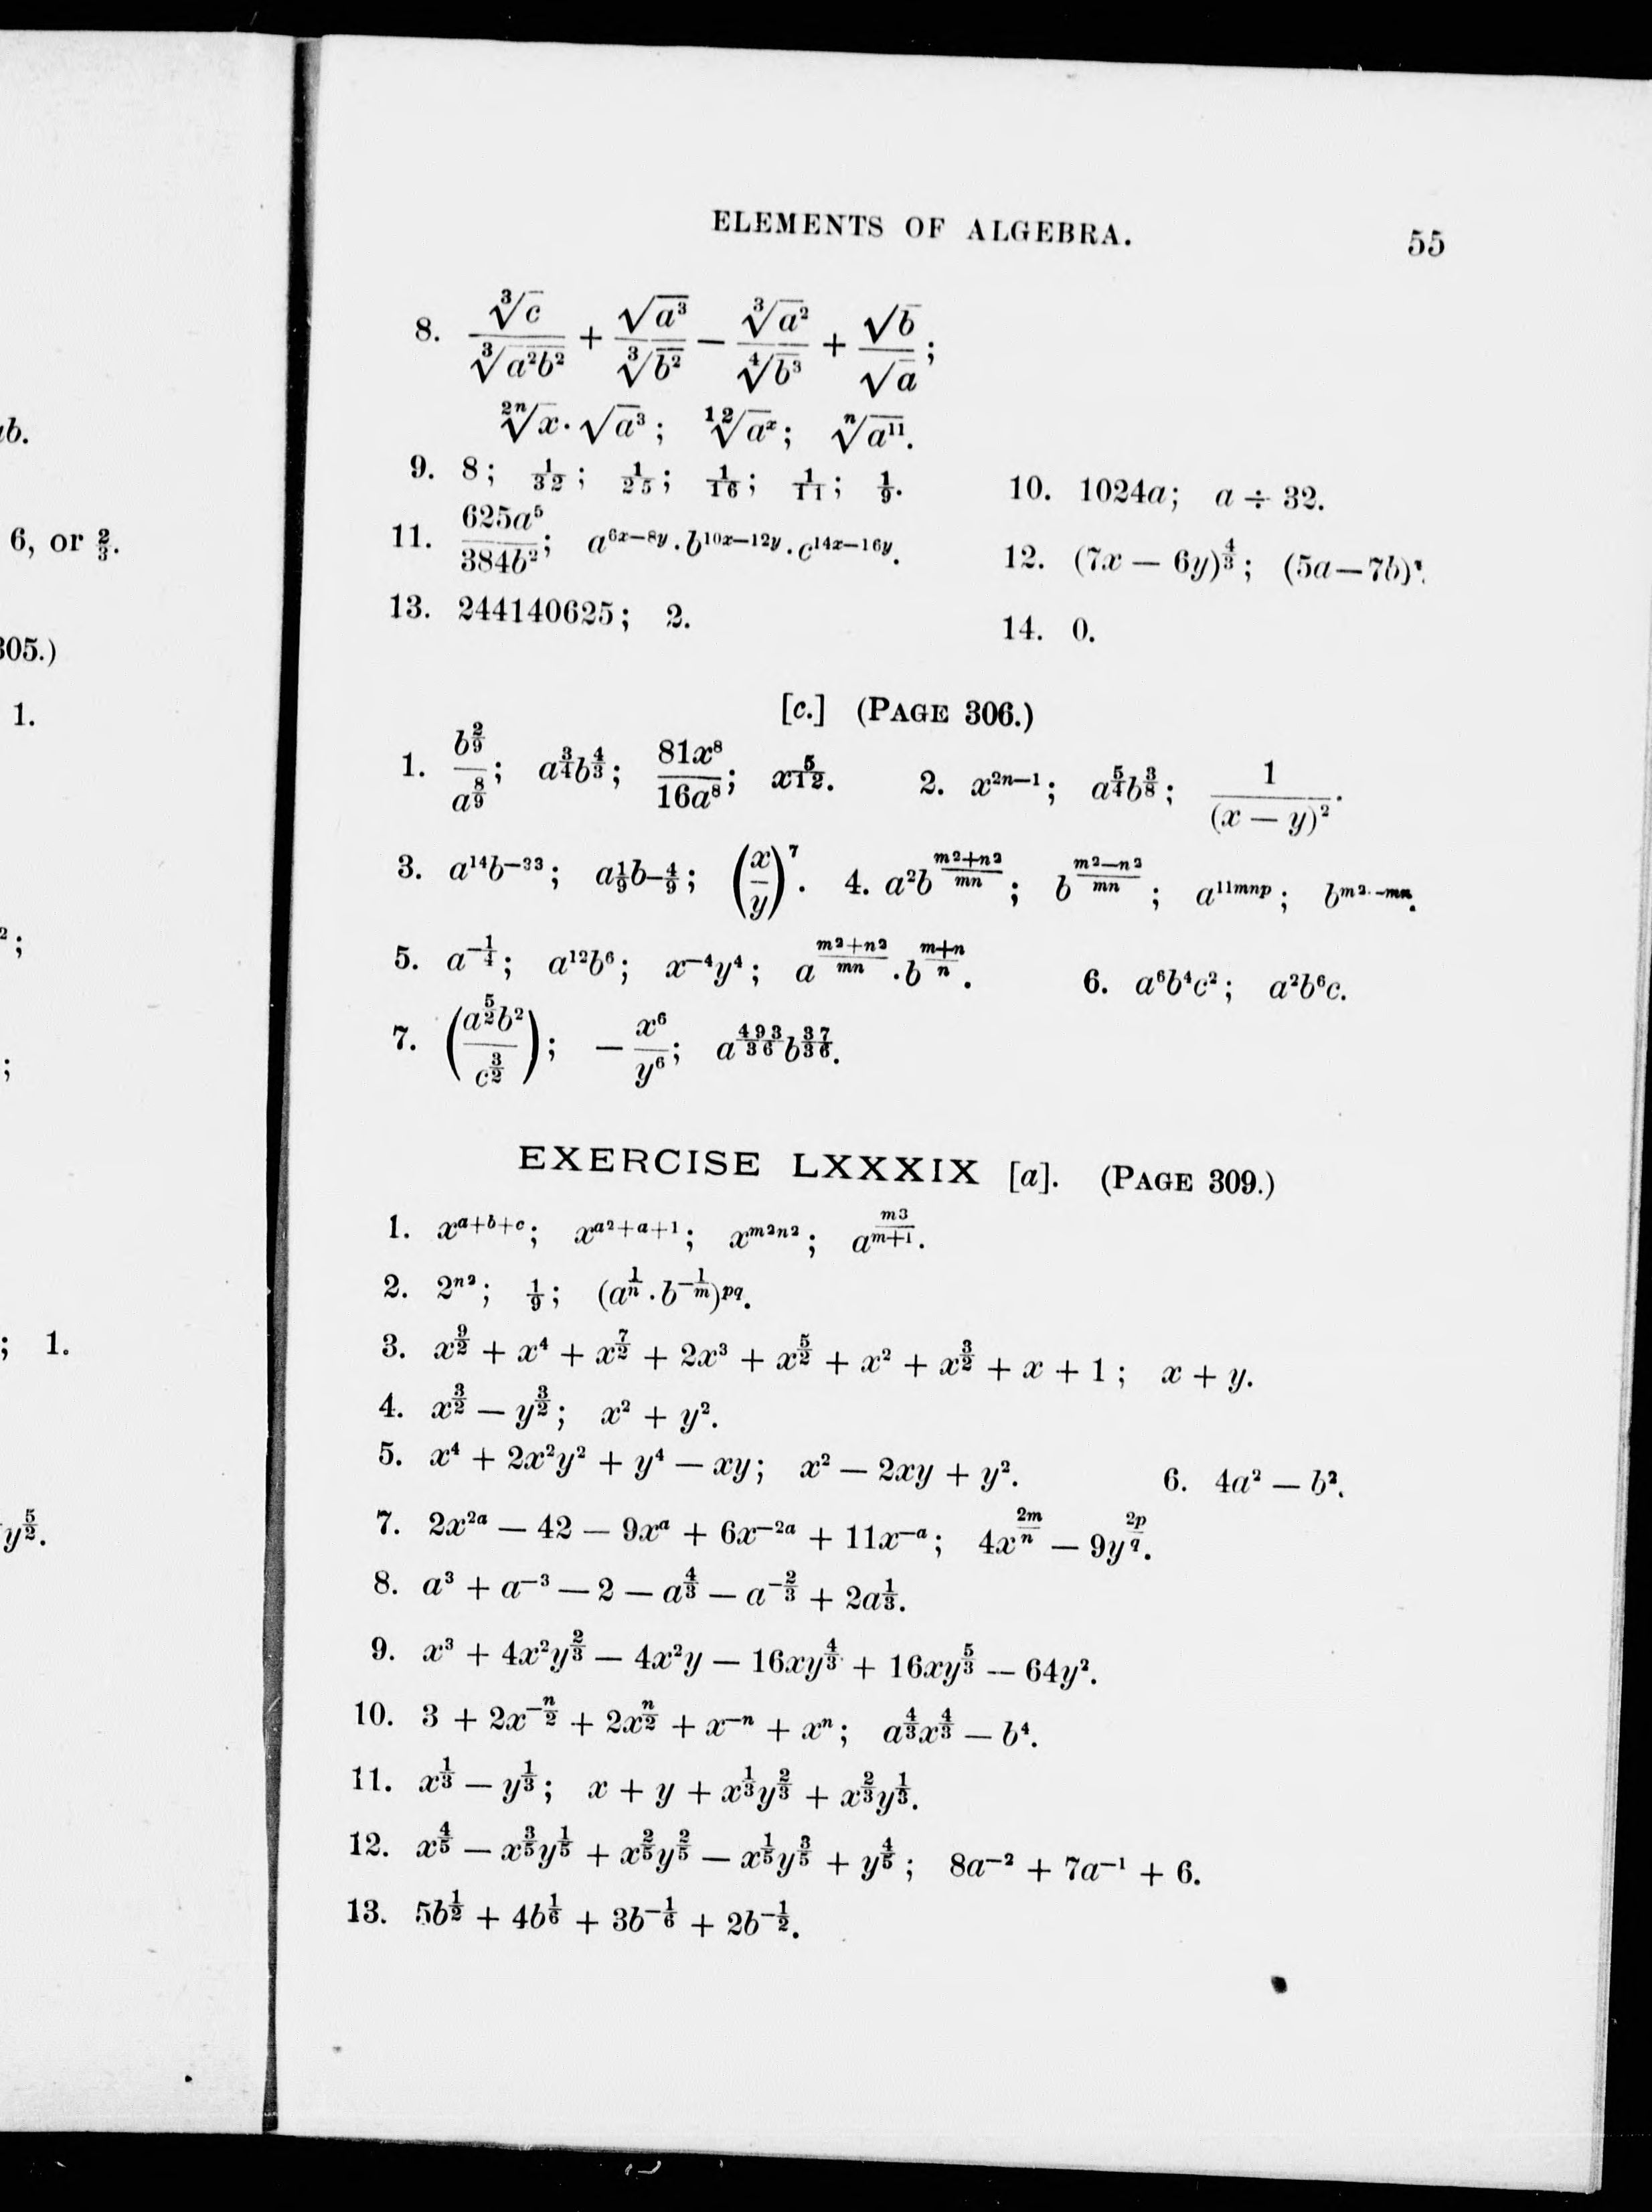 ab.
6, or 2/3.
305.)
1.
2;
;
; 1.
y^{5/2}.
ELEMENTS OF ALGEBRA. 55
8. ∛c/∛(a²b²) + √(a³)/∛(b²) − ∛(a²)/∜(b³) + √b/√a;
^{2n}√x · √a³; ^{12}√a^x; ^n√a^{11}.
9. 8; 1/32; 1/25; 1/16; 1/11; 1/9. 10. 1024a; a ÷ 32.
11. 625a⁵/384b²; a^{6x−8y}.b^{10x−12y}.c^{14x−16y}. 12. (7x − 6y)^{4/3}; (5a−7b)
13. 244140625; 2. 14. 0.
[c.] (PAGE 306.)
1. b^{2/9}/a^{8/9}; a^{3/4}b^{4/3}; 81x⁸/16a⁸; x^{5/12}. 2. x^{2n−1}; a^{5/4}b^{3/8}; 1/(x − y)².
3. a^{14}b^{−33}; a^{1/9}b^{−4/9}; (x/y)^7. 4. a²b^{(m²+n²)/mn}; b^{(m²−n²)/mn}; a^{11mnp}; b^{m²−mn}.
5. a^{−1/4}; a^{12}b⁶; x^{−4}y⁴; a^{(m²+n²)/mn}.b^{(m+n)/n}. 6. a⁶b⁴c²; a²b⁶c.
7. (a^{5/2}b²/c^{3/2}); −x⁶/y⁶; a^{493/36}b^{37/36}.
EXERCISE LXXXIX [a]. (PAGE 309.)
1. x^{a+b+c}; x^{a²+a+1}; x^{m²n²}; a^{m³/(m+1)}.
2. 2^{n²}; 1/9; (a^{1/n}.b^{−1/m})^{pq}.
3. x^{9/2} + x⁴ + x^{7/2} + 2x³ + x^{5/2} + x² + x^{3/2} + x + 1; x + y.
4. x^{3/2} − y^{3/2}; x² + y².
5. x⁴ + 2x²y² + y⁴ − xy; x² − 2xy + y². 6. 4a² − b².
7. 2x^{2a} − 42 − 9x^a + 6x^{−2a} + 11x^{−a}; 4x^{2m/n} − 9y^{2p/q}.
8. a³ + a^{−3} − 2 − a^{4/3} − a^{−2/3} + 2a^{1/3}.
9. x³ + 4x²y^{2/3} − 4x²y − 16xy^{4/3} + 16xy^{5/3} − 64y².
10. 3 + 2x^{−n/2} + 2x^{n/2} + x^{−n} + x^n; a^{4/3}x^{4/3} − b⁴.
11. x^{1/3} − y^{1/3}; x + y + x^{1/3}y^{2/3} + x^{2/3}y^{1/3}.
12. x^{4/5} − x^{3/5}y^{1/5} + x^{2/5}y^{2/5} − x^{1/5}y^{3/5} + y^{4/5}; 8a^{−2} + 7a^{−1} + 6.
13. 5b^{1/2} + 4b^{1/6} + 3b^{−1/6} + 2b^{−1/2}.